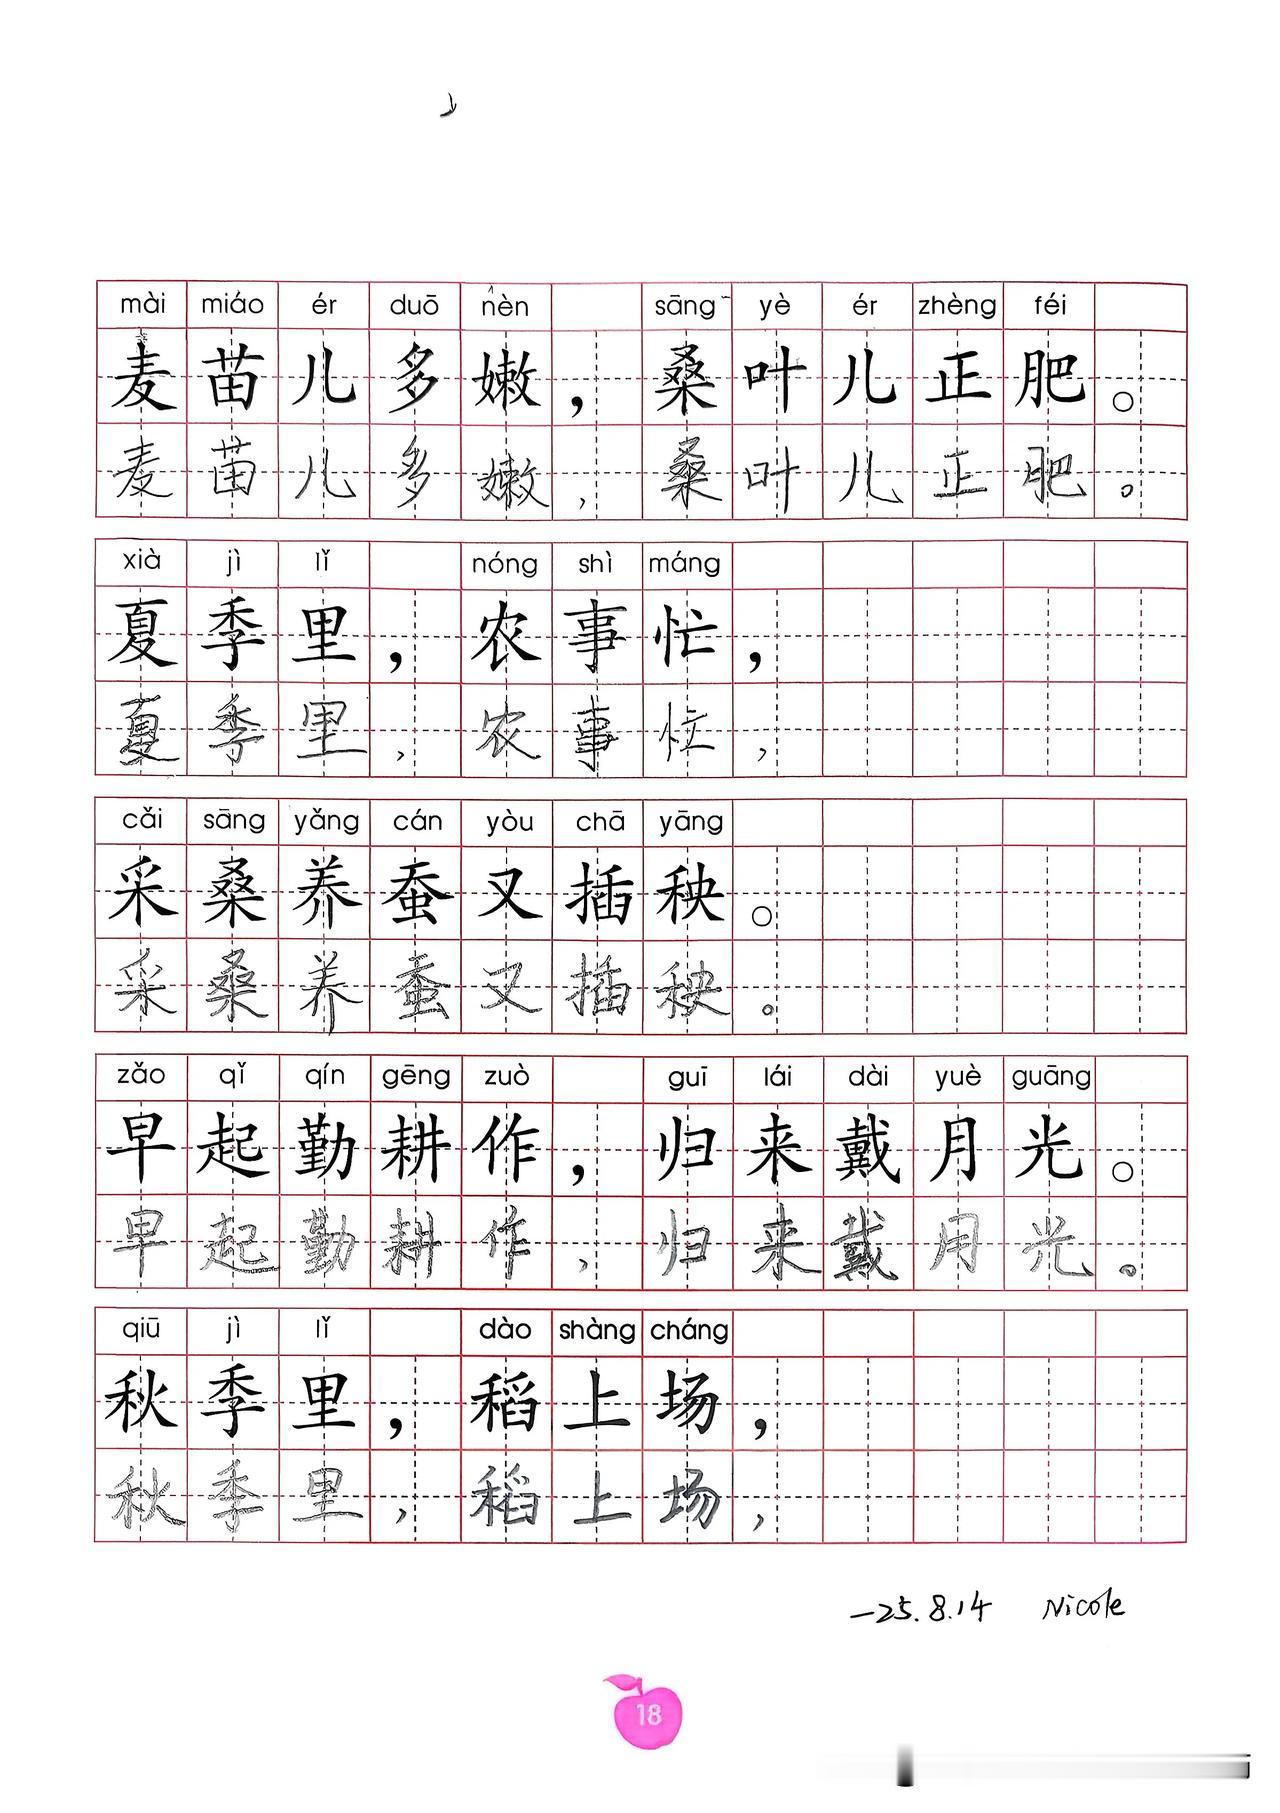 mài miáo ér duō nèn sāng yè ér zhèng féi
麦苗儿多嫩，桑叶儿正肥。
麦苗儿多嫩，桑叶儿正肥。
xià jì lǐ nóng shì máng
夏季里，农事忙，
夏季里，农事忙，
cǎi sāng yǎng cán yòu chā yāng
采桑养蚕又插秧。
采桑养蚕又插秧。
zǎo qǐ qín gēng zuò guī lái dài yuè guāng
早起勤耕作，归来戴月光。
早起勤耕作，归来戴月光。
qiū jì lǐ dào shàng cháng
秋季里，稻上场，
秋季里，稻上场，
—25.8.14 Nicole
18